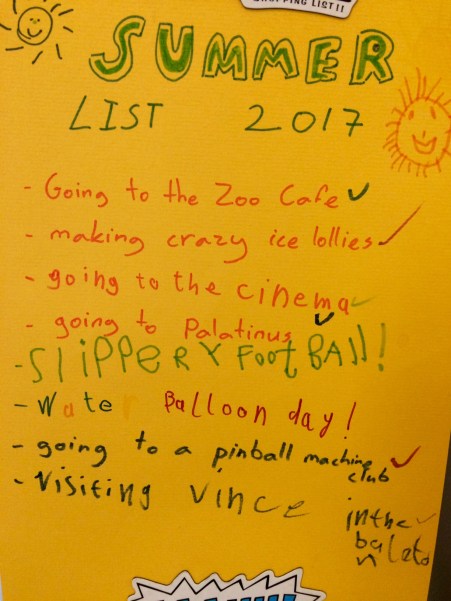 SHOPPING LIST!!
SUMMER
LIST 2017
- Going to the Zoo Cafe ✓
- making crazy ice lollies ✓
- going to the cinema ✓
- going to Palatinus ✓
- SlippERY FootBAll!
- Water Balloon day!
- going to a pinball machine club ✓
- Visiting Vince
in the ✓
balato
n